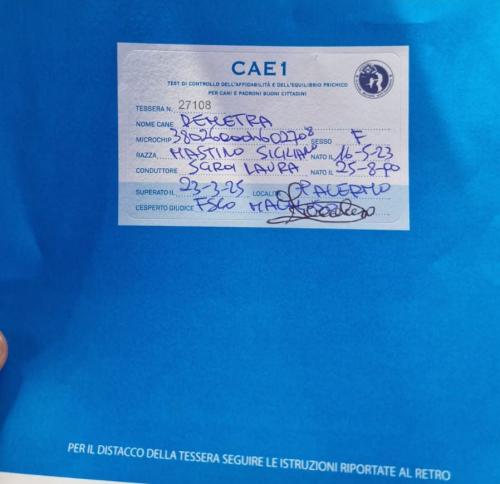 CAE1
TEST DI CONTROLLO DELL'AFFIDABILITÀ E DELL'EQUILIBRIO PSICHICO
PER CANI E PADRONI BUONI CITTADINI
TESSERA N. 27108
NOME CANE DEMETRA
MICROCHIP SESSO F
RAZZA MASTINO SIGLIANO NATO IL 16-5-23
CONDUTTORE LAURA NATO IL 25-8-90
SUPERATO IL 23-3-25 LOCALITÀ PALERMO
L'ESPERTO GIUDICE
PER IL DISTACCO DELLA TESSERA SEGUIRE LE ISTRUZIONI RIPORTATE AL RETRO